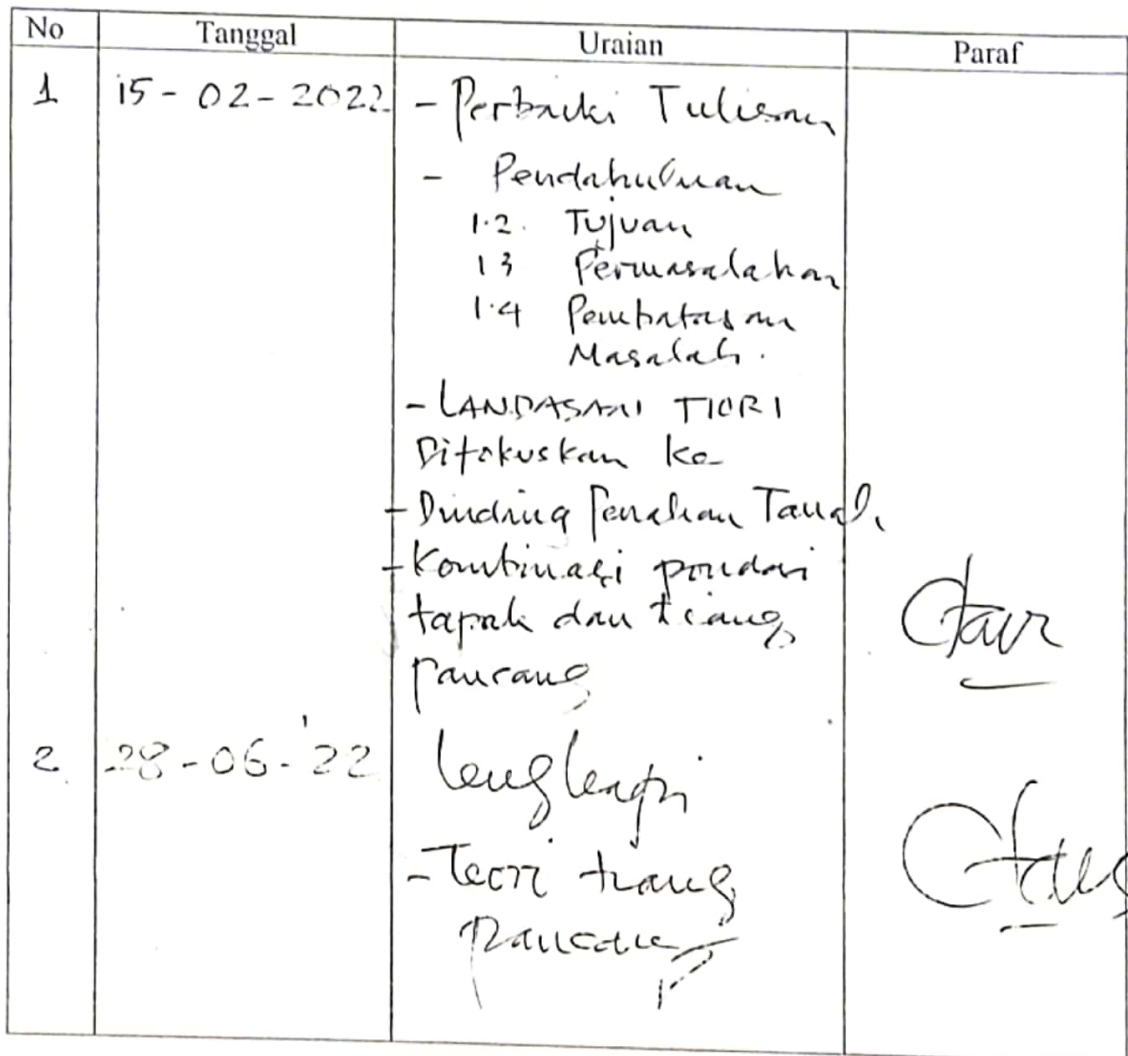 No Tanggal Uraian Paraf
1 15-02-2022 - Perbaiki Tulisan
- Pendahuluan
1.2. Tujuan
1 3 Permasalahan
1.4 Pembatasan
Masalah.
- LANDASAN TIORI
Difokuskan ke
- Dinding Penahan Tanah
- Kombinasi pondasi
tapak dan tiang
pancang
2 28-06-'22 Lengkapi
- Teori tiang
pancang